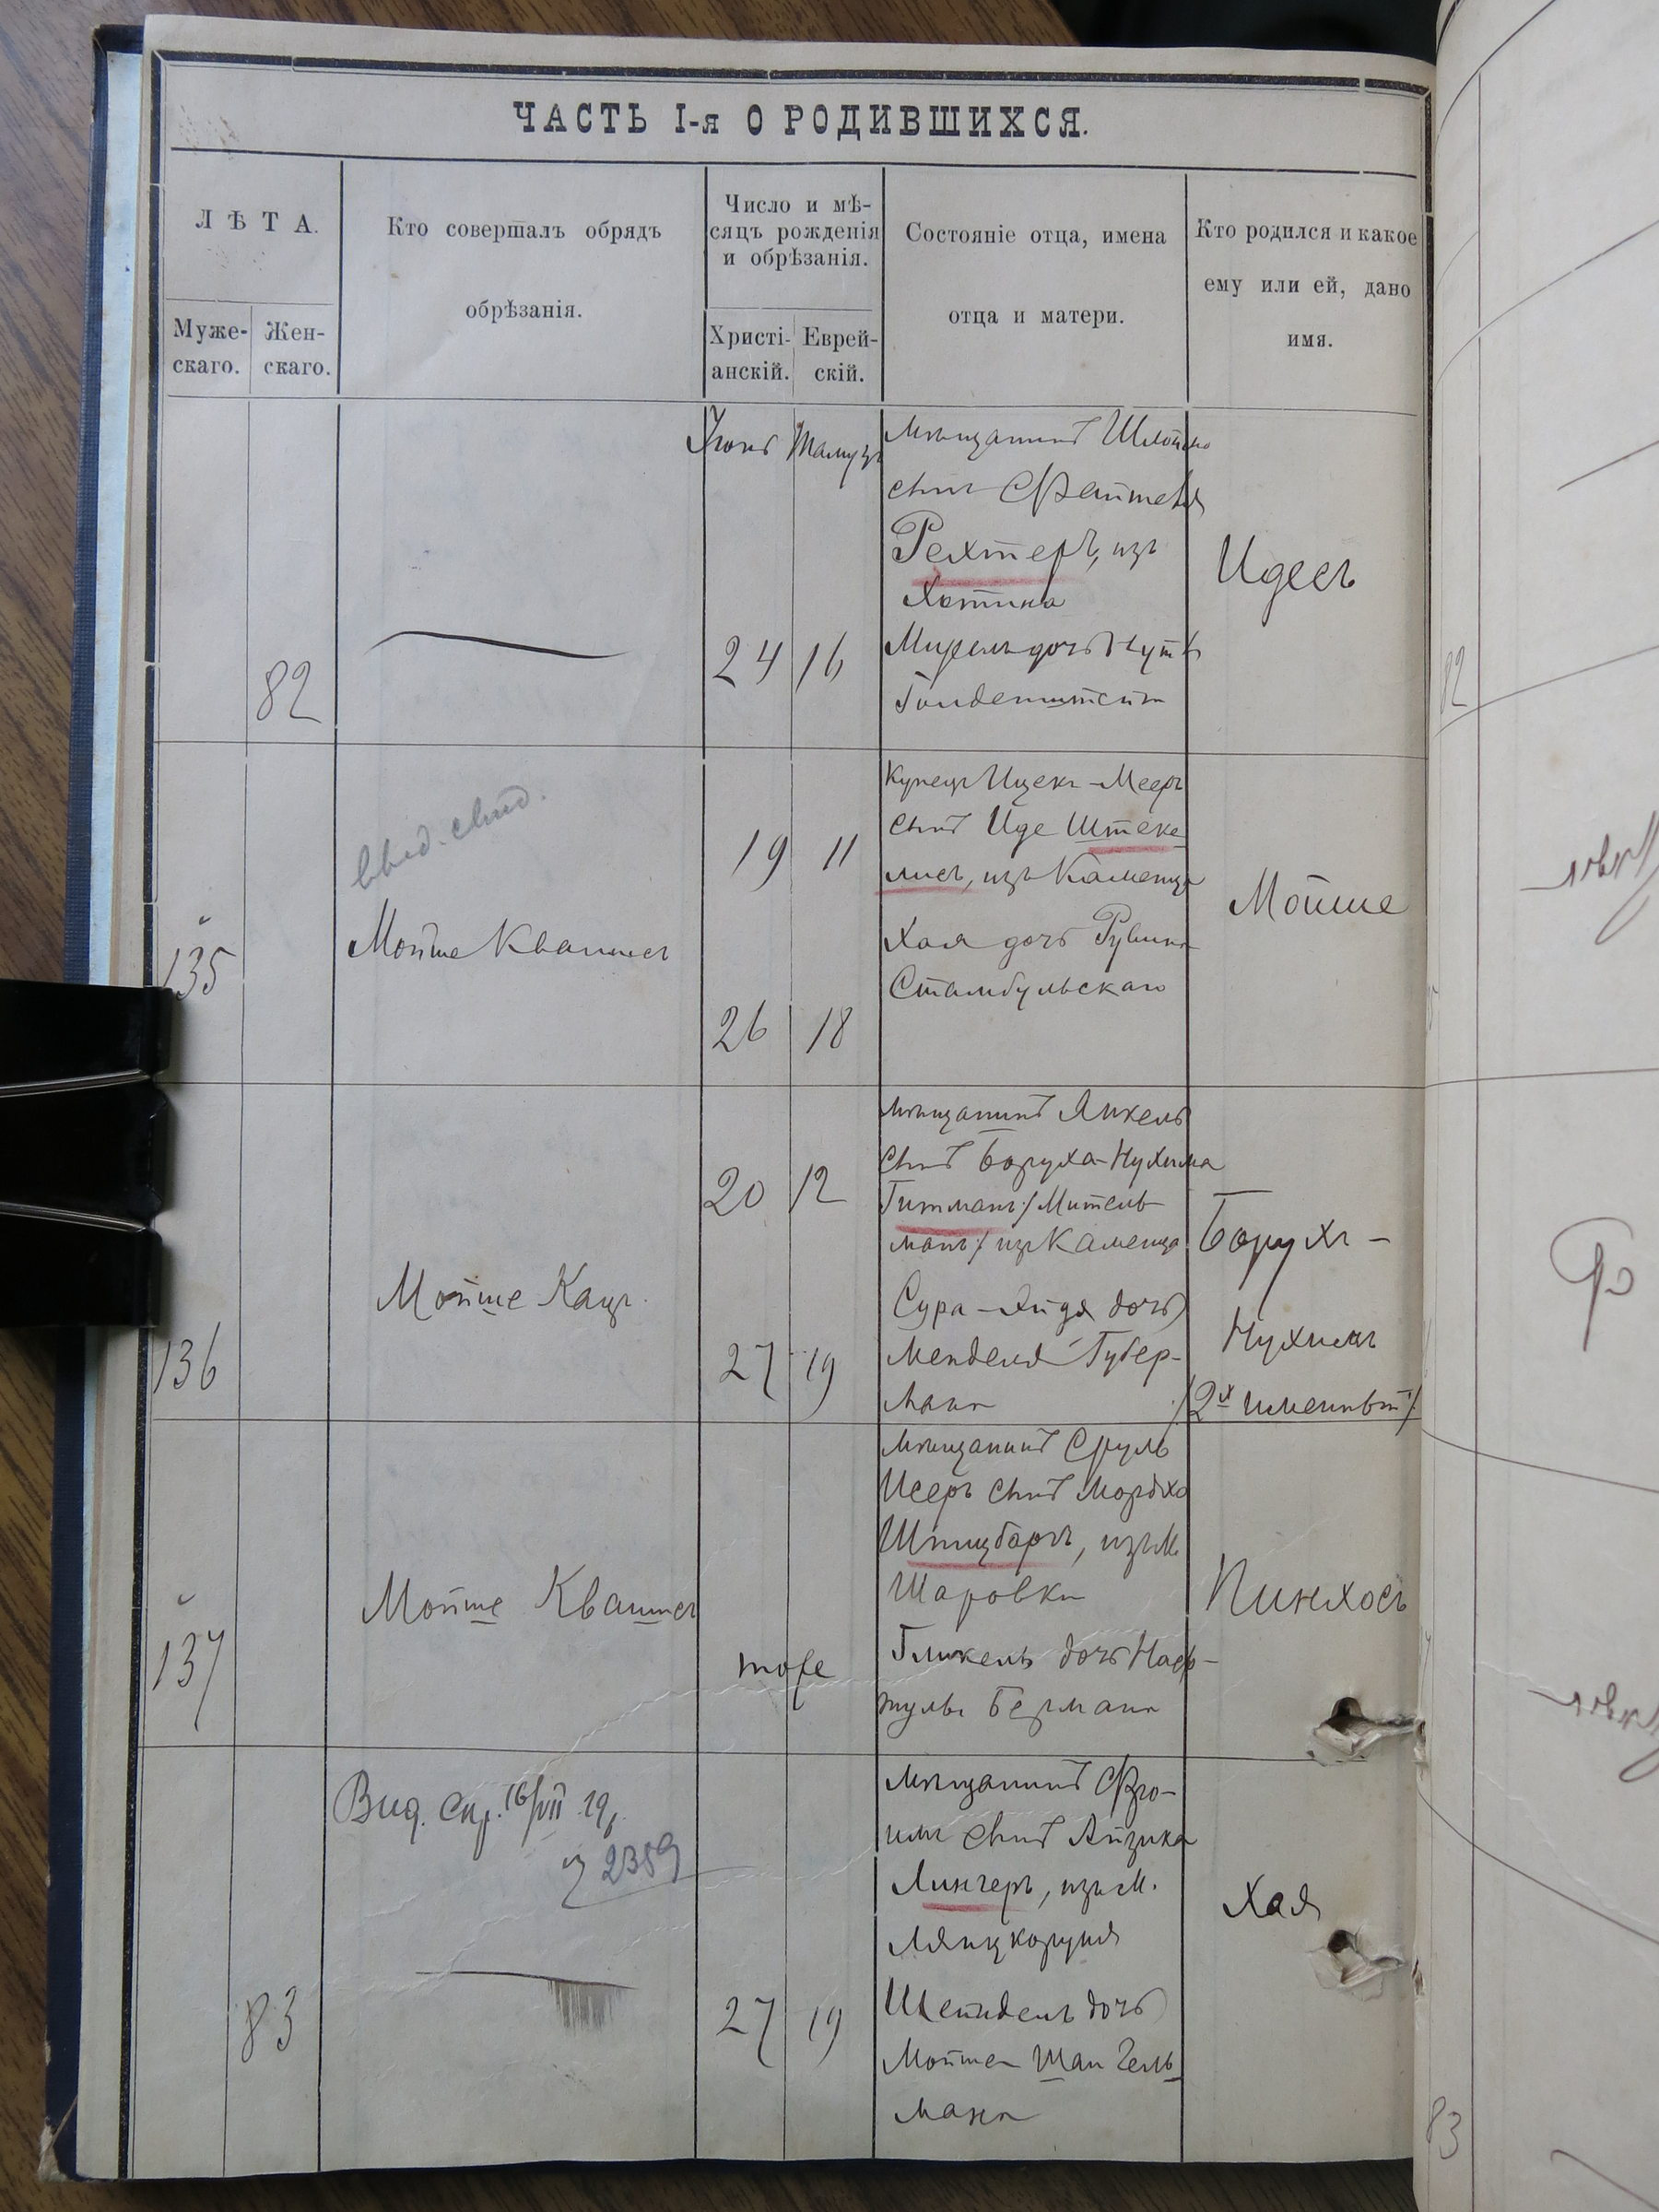 ЧАСТЬ I-я О РОДИВШИХСЯ.
ЛѢТА.
Муже-
скаго.
Жен-
скаго.
Кто совершалъ обрядъ
обрѣзанія.
Число и мѣ-
сяцъ рожденія
и обрѣзанія.
Христі-
анскій.
Еврей-
скій.
Состояніе отца, имена
отца и матери.
Кто родился и какое
ему или ей, дано
имя.
82
Іюнь Тамузъ
24 16
мѣщанинъ Шлойме
сынъ Файтеля
Рехтеръ, изъ
Хотина
Миреля дочь
Идесъ
135
Мойше Квашисъ
19 11
26 18
Купецъ Ицекъ-Мееръ
сынъ Иде Штеке
лисъ, изъ Каменца
Хая дочь Рувина
Стамбульскаго
Мойше
136
Мойше Кацъ
20 12
27 19
мѣщанинъ Янкель
сынъ Боруха-Нухима
Гитманъ /Митель-
манъ/ изъ Каменца
Сура-Хайдя дочь
Менделя Губер-
мана
Борухъ-
Нухимъ
/2х именный/
137
Мойше Квашисъ
тоже
мѣщанинъ Сруль
Исеръ сынъ Мордхо
Шпицбаргъ, изъ М.
Шаровки
Гликель дочь Наф-
тулы Бермана
Пинхосъ
83
Выд. Сп. 16/VII 19
2359
27 19
мѣщанинъ Фро-
имъ сынъ Айзика
Лингеръ, изъ М.
Лянцкоруня
Шейндель дочь
Мойше Шангель-
мана
Хая
82
83